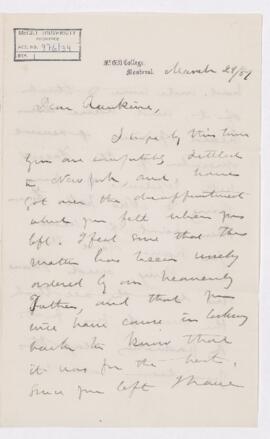 McGILL UNIVERSITY
ARCHIVES
ACC. NO. 976/24
REF.
McGill College,
Montreal.
March 28/
Dear
I hope by this time
you are comfortably settled
in New York and have
got over the disappointment
which you felt when you
left. I feel sure that the
matter has been wisely
ordered by our heavenly
Father, and that you
will have cause in looking
back to know that
it was for the best.
Since you left I have